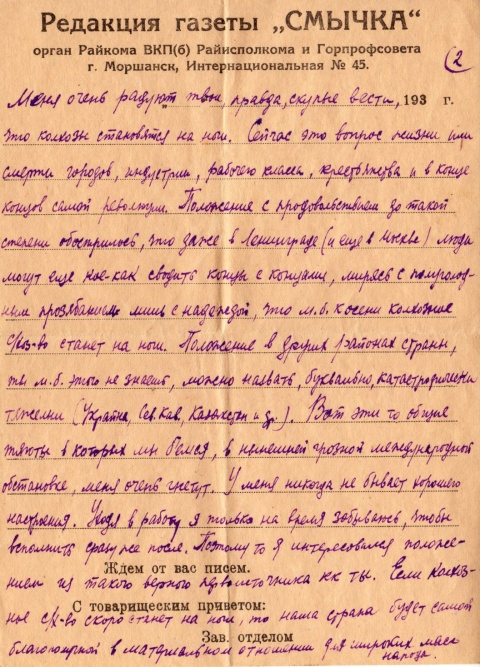 Редакция газеты „СМЫЧКА“
орган Райкома ВКП(б) Райисполкома и Горпрофсовета
г. Моршанск, Интернациональная № 45.
2
Меня очень радуют твои, правда, скупые вести, 193 г.
что колхозы становятся на ноги. Сейчас это вопрос жизни или
смерти городов, индустрии, рабочего класса, крестьянства и в конце
концов самой революции. Положение с продовольствием до такой
степени обострилось, что даже в Ленинграде (и еще в Москве) люди
могут еще кое-как сводить концы с концами, мирясь с полуголод-
ным прозябанием лишь с надеждой, что м.б. к осени колхозное
с/хоз-во станет на ноги. Положение в других районах страны,
ты м.б. этого не знаешь, можно назвать, буквально, катастрофически
тяжелым (Украина, Сев. Кав., Казахстан и др.). Вот эти то общие
в которых мы бьемся, в нынешней грозной международной
обстановке, меня очень гнетут. У меня никогда не бывает хорошего
настроения. Уходя в работу я только на время забываюсь, чтобы
вспомнить сразу же после. Поэтому то я интересовался положе-
Ждем от вас писем.
нием из такого верного первоисточника как ты. Если колхоз-
С товарищеским приветом:
ное с/х-во скоро станет на ноги, то наша страна будет самой
Зав. отделом
благополучной в материальном отношении для широких масс
народа.